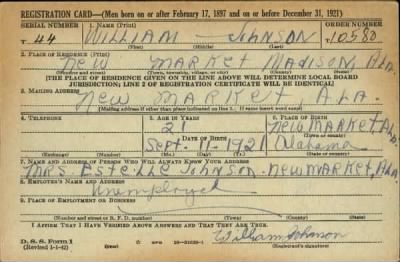 REGISTRATION CARD—(Men born on or after February 17, 1897 and on or before December 31, 1921)
SERIAL NUMBER 1. NAME (Print) ORDER NUMBER
T 44 WILLIAM — JOHNSON 10580
(First) (Middle) (Last)
2. PLACE OF RESIDENCE (Print)
New MARKET MADISON, ALA.
(Number and street) (Town, township, village, or city) (County) (State)
[THE PLACE OF RESIDENCE GIVEN ON THE LINE ABOVE WILL DETERMINE LOCAL BOARD
JURISDICTION; LINE 2 OF REGISTRATION CERTIFICATE WILL BE IDENTICAL]
3. MAILING ADDRESS
New MARKET ALA.
[Mailing address if other than place indicated on line 2. If same insert word same]
4. TELEPHONE 5. AGE IN YEARS 6. PLACE OF BIRTH
21 New Market, Ala.
DATE OF BIRTH (Town or county)
Sept. 11 - 1921 Alabama
(Exchange) (Number) (Mo.) (Day) (Yr.) (State or country)
7. NAME AND ADDRESS OF PERSON WHO WILL ALWAYS KNOW YOUR ADDRESS
MRS. Estelle Johnson - New MARKET, ALA
8. EMPLOYER'S NAME AND ADDRESS
Unemployed
9. PLACE OF EMPLOYMENT OR BUSINESS
(Number and street or R. F. D. number) (Town) (County) (State)
I AFFIRM THAT I HAVE VERIFIED ABOVE ANSWERS AND THAT THEY ARE TRUE.
D. S. S. Form 1 William Johnson
(Revised 1-1-42) (Registrant's signature)